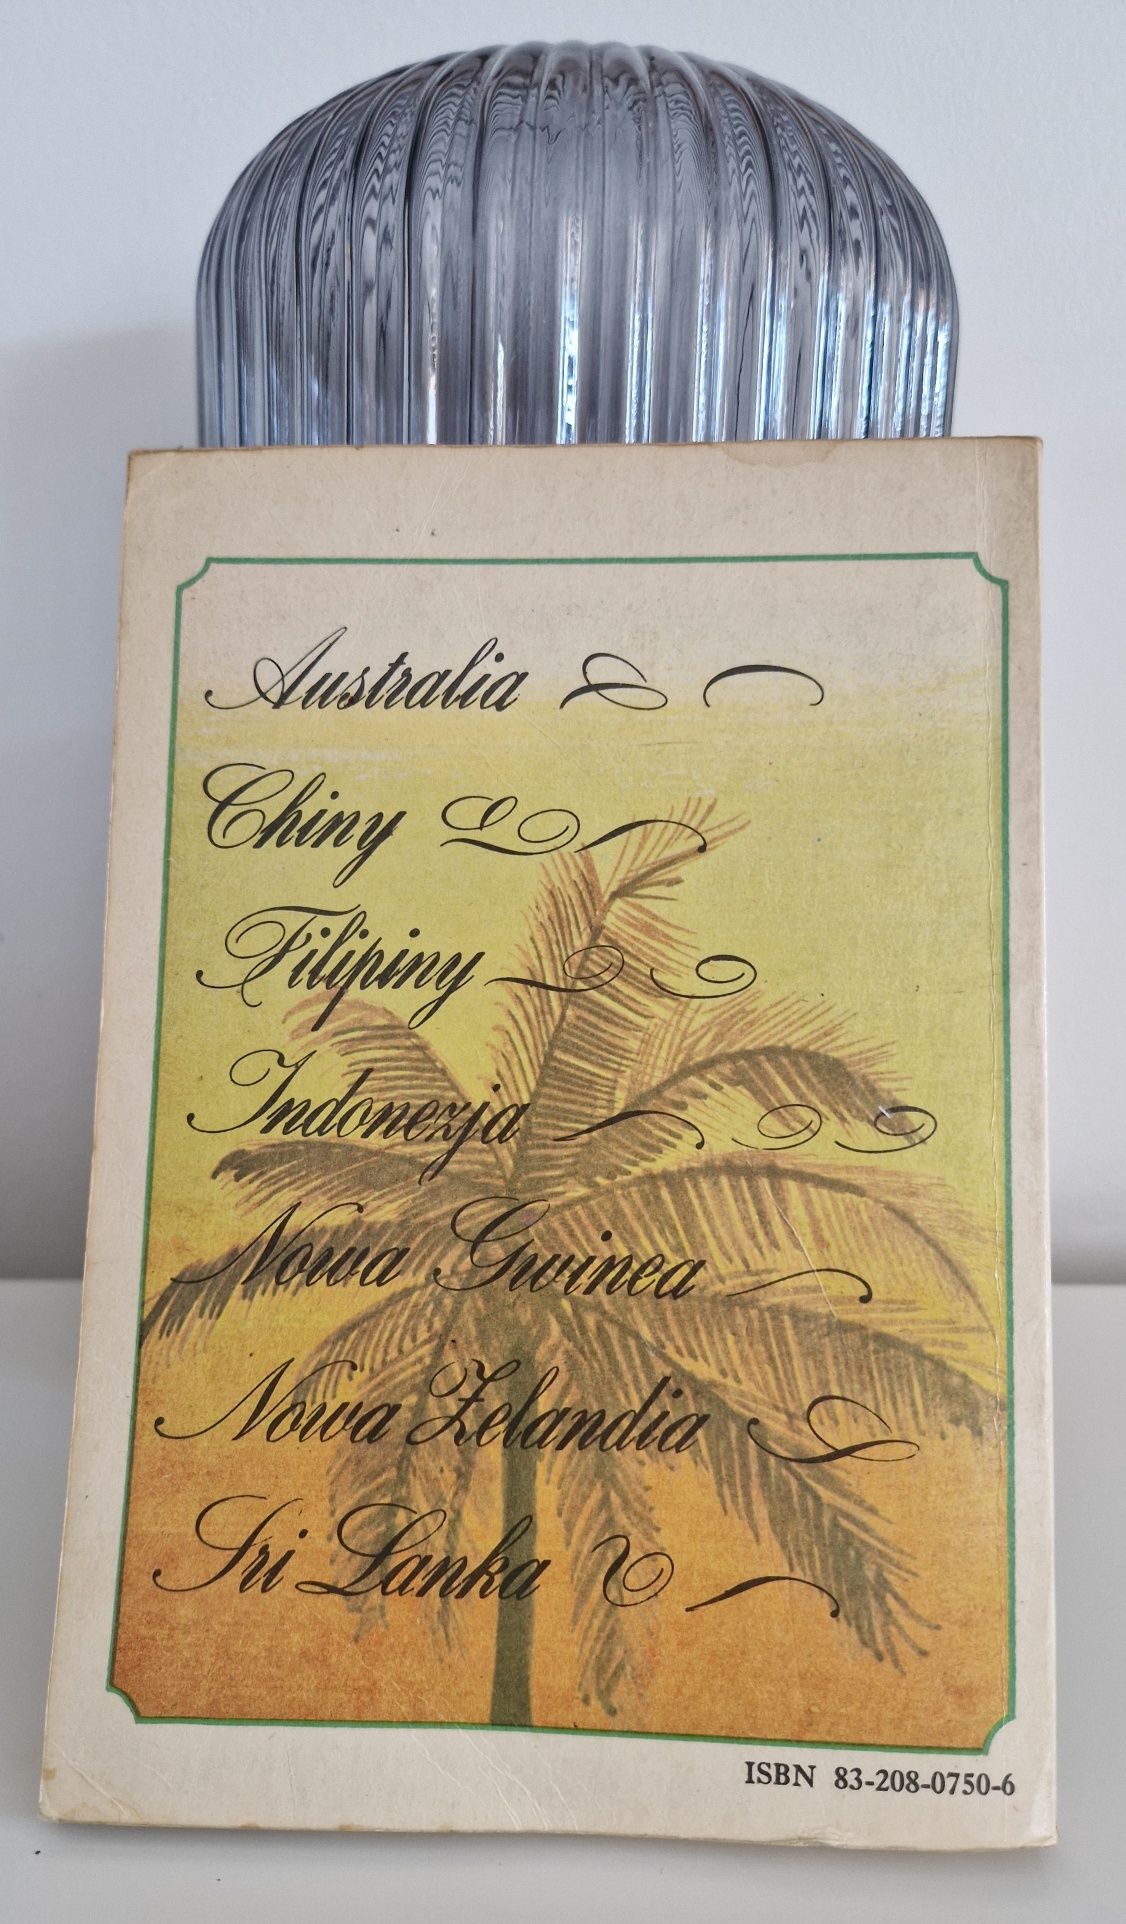 Australia
Chiny
Filipiny
Indonezja
Nowa Gwinea
Nowa Zelandia
Sri Lanka
ISBN 83-208-0750-6